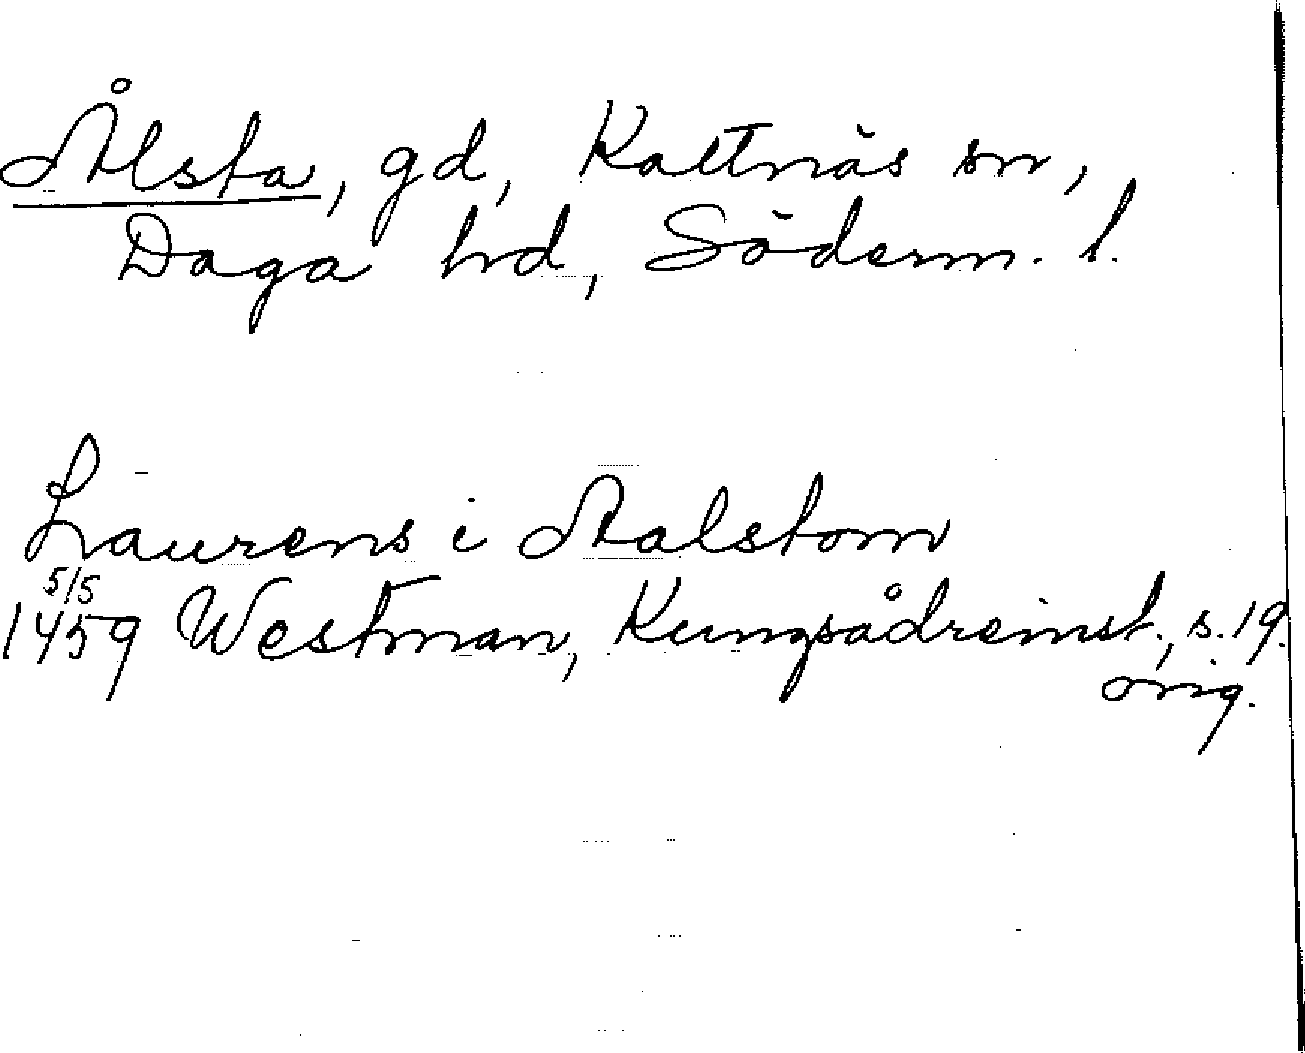 Ålsta, gd, Kattnäs sn,
Daga hd, Söderm. l.
Laurens i Aalstom
5/5
1459 Westman, Kungsådreinst., s. 19.
orig.